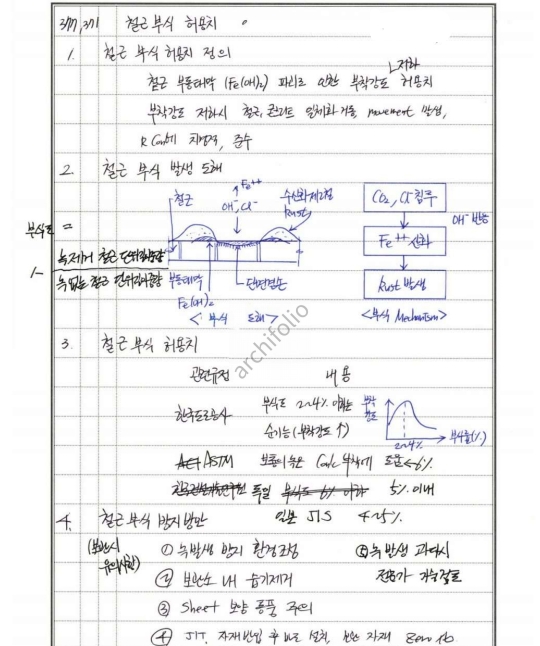 철근 부식 허용치
1. 철근 부식 허용치 정의
저하
철근 부동태막 (Fe(OH)₂) 파괴로 인한 부착강도 허용치
부착강도 저하시 철근, 콘크리트 일체화 거동 movement 발생,
R.Con't 치명적, 준수
2. 철근 부식 발생 도해
부식률 =
1-
녹제거 철근 단위길이중량
녹없는 철근 단위길이중량
철근
Fe⁺⁺
OH⁻ Cl⁻
수산화제2철
Rust
부동태막
Fe(OH)₂
단면결손
<부식 도해>
CO₂, Cl⁻ 침투
OH⁻ 반응
Fe⁺⁺ 산화
Rust 발생
<부식 Mechanism>
3. 철근 부식 허용치
관련규정 내용
한국도로공사 부식률 2~4% 이내는
순기능 (부착강도 ↑)
부착강도
2~4%
부식률(%)
ASTM 보통의 녹은 Conc 부착에 도움 <6%
독일 5% 이내
일본 JIS 4~5%
4. 철근 부식 방지방안
(보관시 유의사항)
① 녹발생 방지 환경조성
② 보관소 내 습기제거
③ Sheet 보양 통풍 주의
④ JIT, 자재반입 후 바로 설치, 보관 자재 Zero화
⑤ 녹 발생 과다시
전문가 기술검토
archifolio